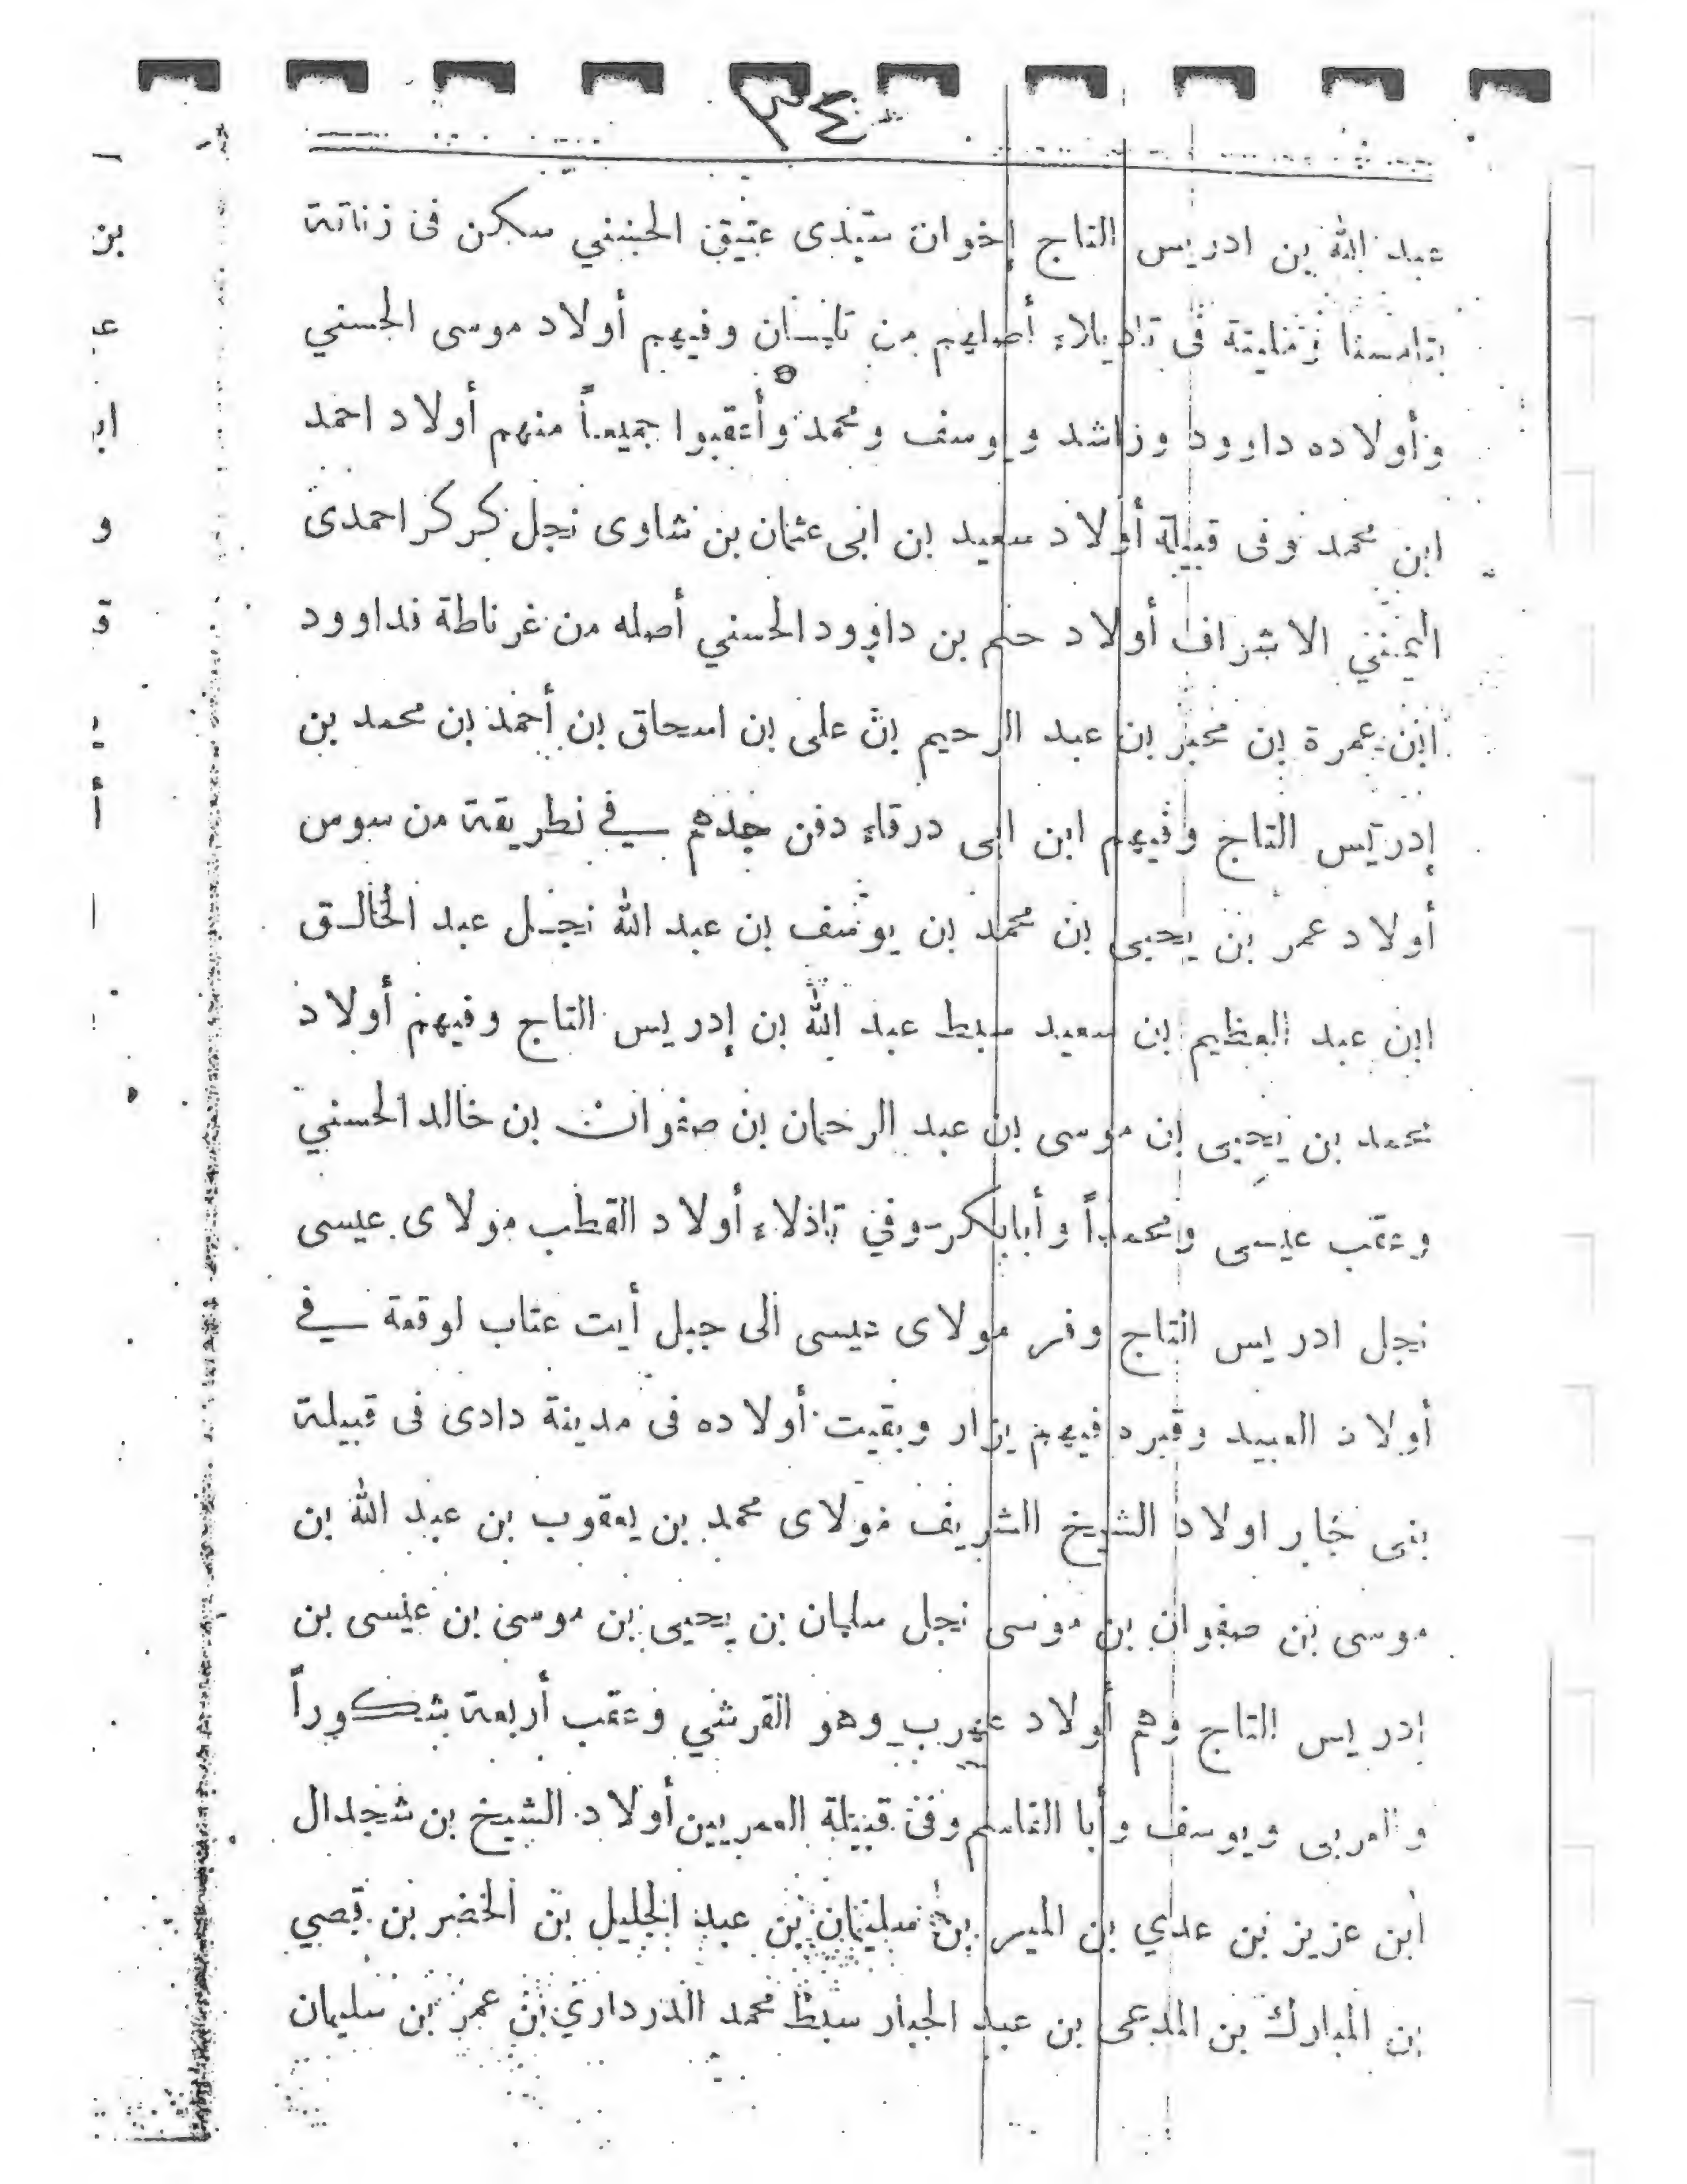 ٣٤
عبد الله بن ادريس التاج إخوان سيدى عتيق الحسني سكن فى زناتة
بتامسنا زناتية فى تاديلاء أصلهم من تلمسان وفيهم أولاد موسى الحسني
وأولاده داوود وراشد ويوسف ومحمد وأعقبوا جميعاً منهم أولاد احمد
ابن محمد وفى قبيلة أولاد سعيد بن ابى عثمان بن شاوى نجل كركر احمدى
اليمنى الاشراف أولاد حم بن داوود الحسني أصله من غرناطة نداوود
ابن عمرة بن محبر بن عبد الرحيم بن على بن اسحاق بن أحمد بن محمد بن
إدريس التاج وفيهم ابن ابى درقاء دفن جدهم في نطريقة من سوس
أولاد عمر بن يحيى بن محمد بن يوسف بن عبد الله نجل عبد الخالق
ابن عبد العظيم بن سعيد سبط عبد الله بن إدريس التاج وفيهم أولاد
محمد بن يحيى بن موسى بن عبد الرحمان بن صفوان بن خالد الحسني
وعقب عيسى ومحمداً وأبابكر وفي تاذلاء أولاد القطب مولاى عيسى
نجل ادريس التاج وفر مولاى عيسى الى جبل أيت عتاب لوقعة في
أولاد العبيد وقبره فيهم يزار وبقيت أولاده فى مدينة دادى فى قبيلة
بنى جابر اولاد الشيخ الشريف مولاى محمد بن يعقوب بن عبد الله بن
موسى بن صفوان بن موسى نجل سليمان بن يحيى بن موسى بن عيسى بن
إدريس التاج وهم أولاد وهو القرشي وعقب أربعة شكوراً
والعربى ويوسف وأبا القاسم وفى قبيلة العمريين أولاد الشيخ بن شجدال
ابن عزيز بن عدي بن المير بن سليمان بن عبد الجليل بن الخضر بن قصي
بن المبارك بن المدعى بن عبد الجبار سبط محمد الدرداري بن عمر بن سليمان